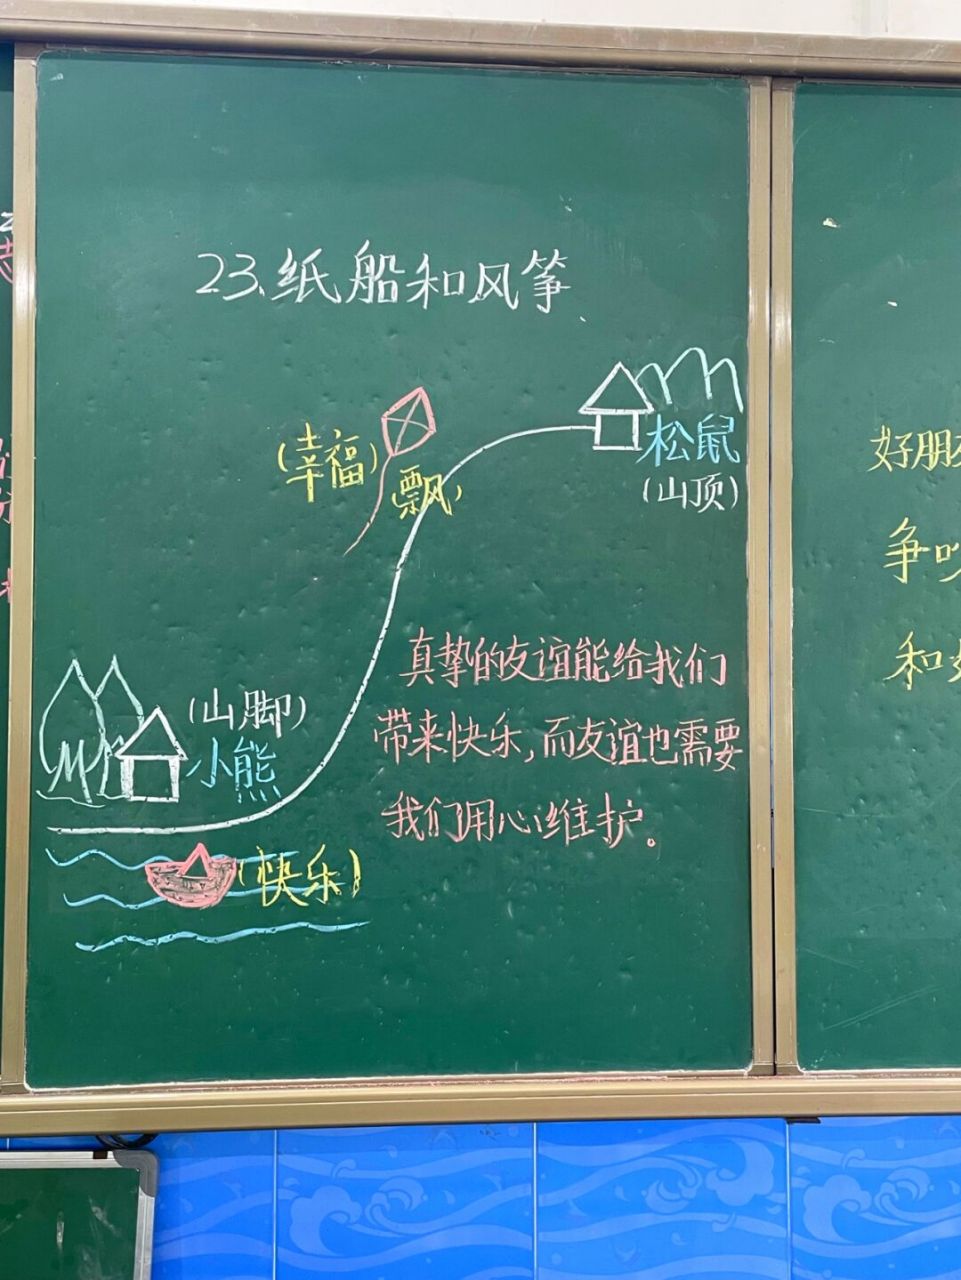 23、纸船和风筝
(幸福)
(飘)
松鼠
(山顶)
(山脚)
小熊
真挚的友谊能给我们
带来快乐,而友谊也需要
我们用心维护。
(快乐)
好朋
争吵
和好